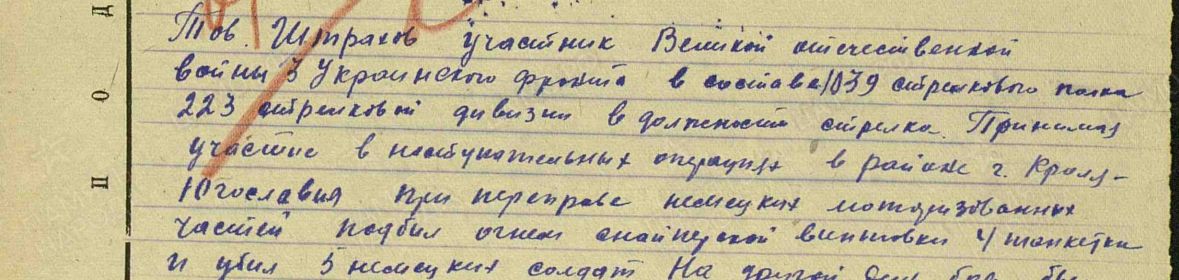 Тов. Штрахов участник Великой отечественной
войны 3 Украинского фронта в составе 1039 стрелкового полка
223 стрелковой дивизии в должности стрелка. Принимая
участие в наступательных операциях в районе г. Краля-
Югославия при переправе немецких моторизованных
частей подбил огнем снайперской винтовки 4 танкетки
и убил 5 немецких солдат На другой день
Д
О
П